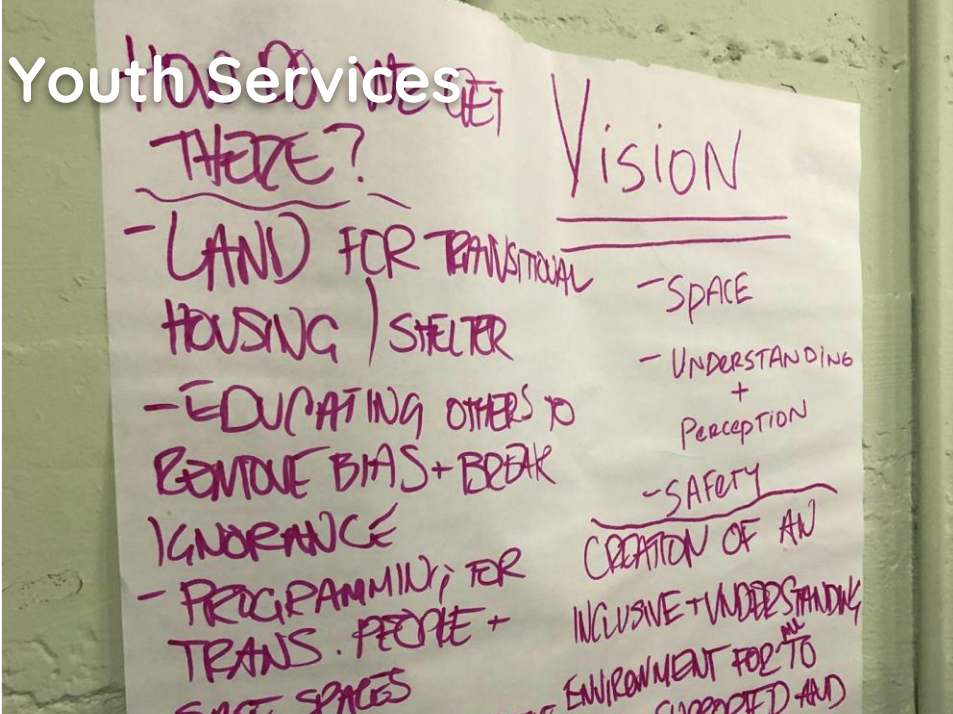 Youth Services
HOW DO WE GET
THERE?
- LAND FOR TRANSITIONAL
HOUSING / SHELTER
- EDUCATING OTHERS TO
REMOVE BIAS + BREAK
IGNORANCE
- PROGRAMMING FOR
TRANS. PEOPLE +
SAFE SPACES
Vision
- SPACE
- UNDERSTANDING
+
PERCEPTION
- SAFETY
CREATION OF AN
INCLUSIVE + UNDERSTANDING
ENVIRONMENT FOR ALL TO
SUPPORTED AND